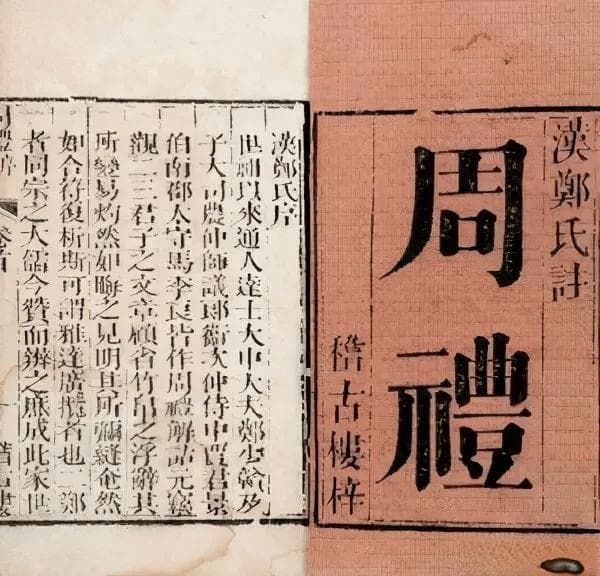 漢鄭氏註
周禮
稽古樓梓
漢鄭氏序
世祖以來通人達士大中大夫鄭少贛及
子大司農仲師議郎衛次仲侍中賈君景
伯南郡太守馬季長皆作周禮解詁元竊
觀二三君子之文章顧省竹帛之浮辭其
所變易灼然如晦之見明其所彌縫奄然
如合符復析斯可謂雅達廣攬者也二鄭
者同宗之大儒今贊而辨之庶成此家世
卷首